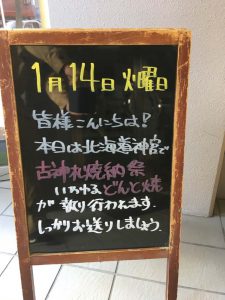 1月14日 火曜日
皆様こんにちは!
本日は北海道神宮で
古神札焼納祭
いわゆるどんと焼
が執り行われます.
しっかりお送りしましょう.